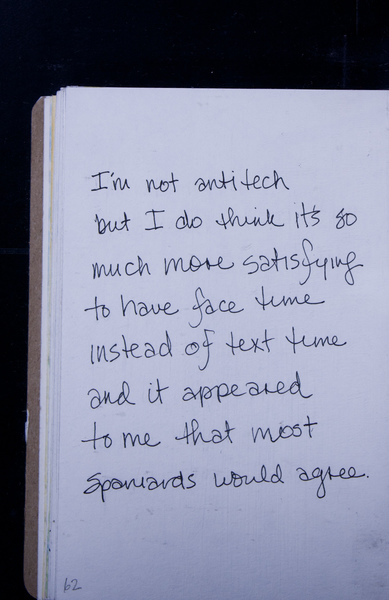 I'm not antitech
but I do think it's so
much more satisfying
to have face time
instead of text time
and it appeared
to me that most
Spaniards would agree.
62